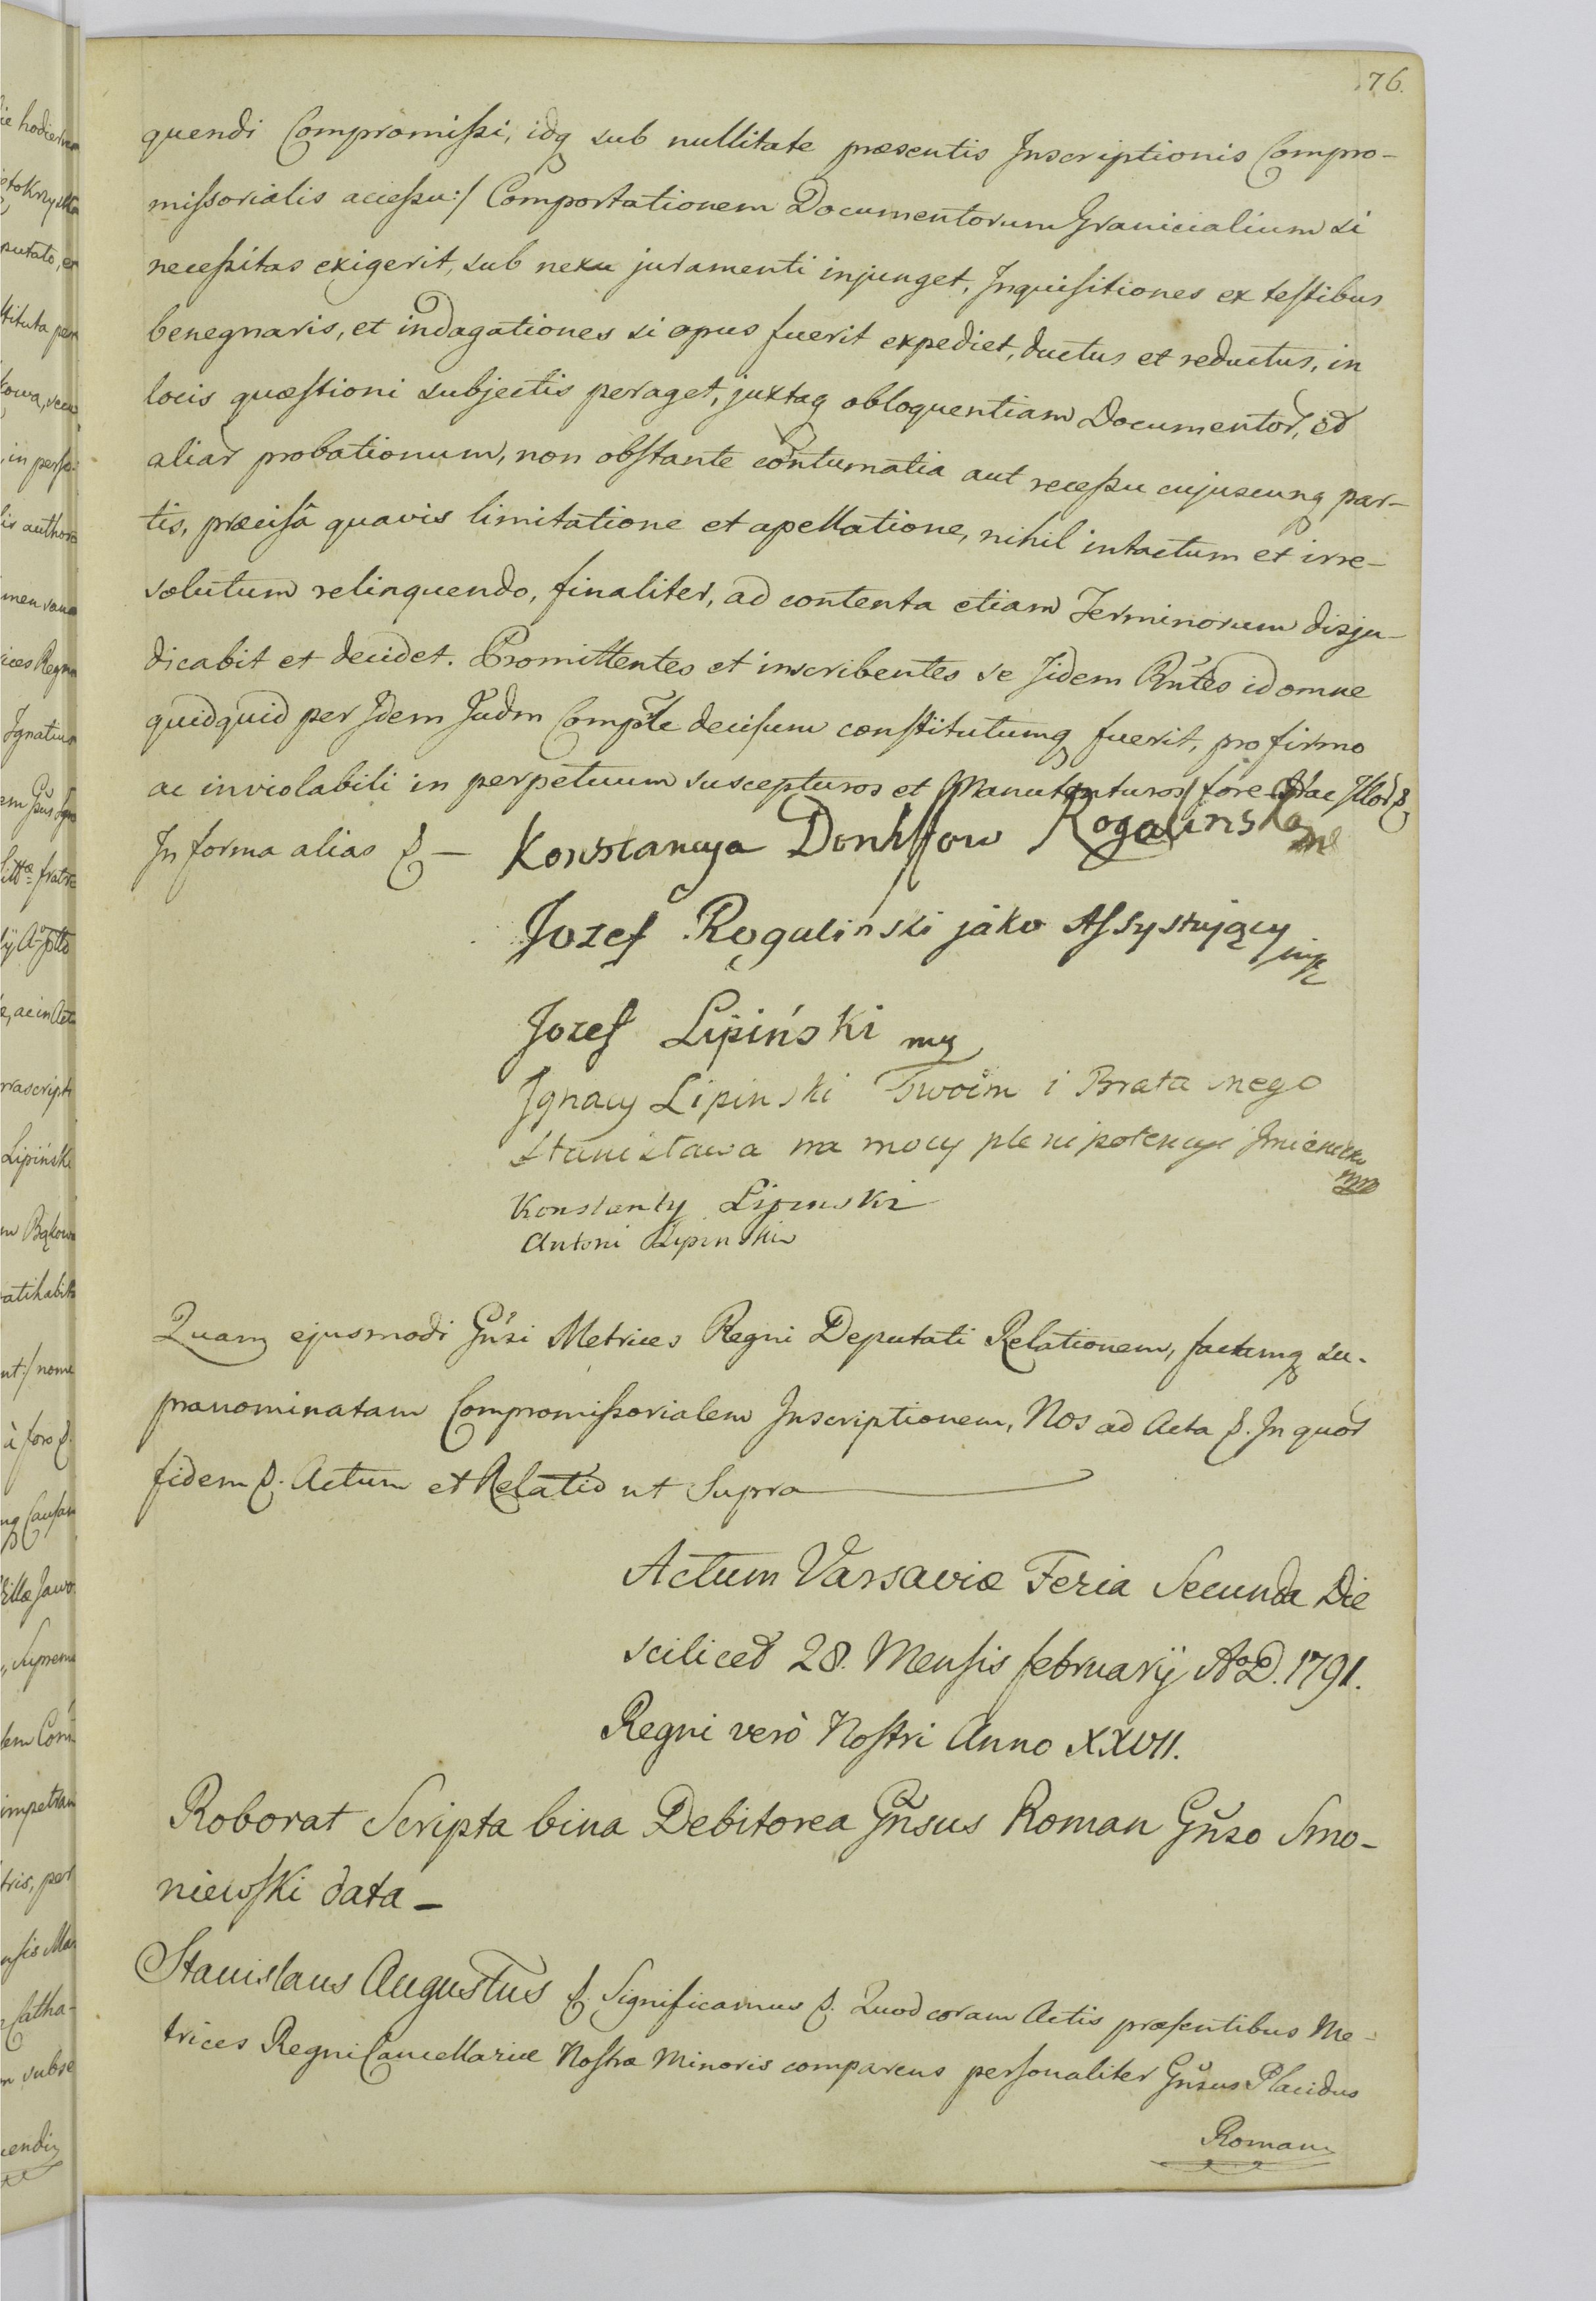 76.
quendi Compromissi, idq sub nullitate præsentis Inscriptionis Compro-
missorialis accessu:/ Comportationem Documentorum Granicialium si
necessitas exigerit, sub nexu juramenti injunget, Inquisitiones ex testibus
benegnaris, et indagationes si opus fuerit expediet, ductus et reductus, in
locis quæstioni subjectis peraget, juxtaq obloquentiam Documentor, et
aliar probationum, non obstante contumatia aut recessu cujuscunq par-
tis, præcisâ quavis limitatione et apellatione, nihil intactum et irre-
solutum relinquendo, finaliter, ad contenta etiam Terminorum disju-
dicabit et decidet. Promittentes et inscribentes se Iidem Rñtes id omne
quidquid per Idem Judm Compte decisum constitutumq fuerit, pro firmo
ac inviolabili in perpetuum suscepturos et Manutenturos fore
In forma alias & — Konstancya Donhffow Rogalinska
Jozef Rogalinski jáko Assystujący
Jozef Lipiński mp
Ignacy Lipinski Swoim i Brata mego
Stanisława na mocy plenipotencyi Imieniem
Konstanty Lipinski
Antoni Lipinski
Quam ejusmodi Gñsi Metrices Regni Deputati Relationem, factamq su-
pranominatam Compromissorialem Inscriptionem, Nos ad Acta &. In quor
fidem &. Actum et Relatio ut Supra
Actum Varsaviæ Feria Secunda Die
scilicet 28. Mensis februarÿ AoD. 1791.
Regni verò Nostri Anno XXVII.
Roborat Scripta bina Debitorea Gñsus Roman Gñso Smo-
niewski data —
Stanislaus Augustus &. Significamus &. Quod coram Actis præsentibus Me-
trices Regni Cancellariæ Nostræ Minoris comparens personaliter Gñsus Placidus
Roman